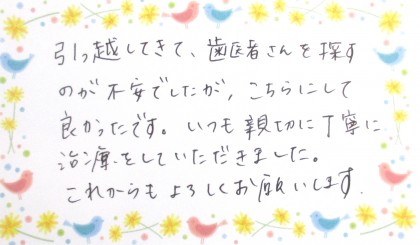 引っ越してきて、歯医者さんを探す
のが不安でしたが、こちらにして
良かったです。いつも親切に丁寧に
治療をしていただきました。
これからもよろしくお願いします。